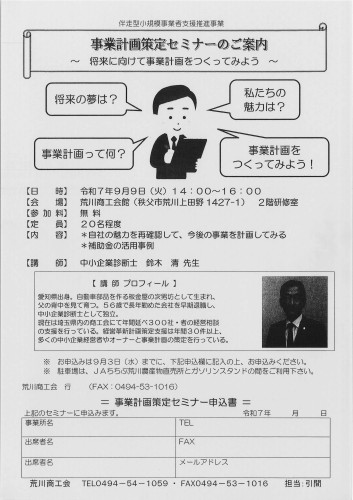 伴走型小規模事業者支援推進事業
事業計画策定セミナーのご案内
～ 将来に向けて事業計画をつくってみよう ～
将来の夢は？
私たちの
魅力は？
事業計画って何？
事業計画を
つくってみよう！
【日　時】 令和７年９月９日（火）１４：００～１６：００
【会　場】 荒川商工会館（秩父市荒川上田野1427-1） ２階研修室
【参 加 料】 無 料
【定　員】 ２０名程度
【内　容】 ＊自社の魅力を再確認して、今後の事業を計画してみる
＊補助金の活用事例
【講　師】 中小企業診断士　鈴木　清 先生
【 講 師 プロフィール 】
愛知県出身。自動車部品を作る板金屋の次男坊として生まれ、
父の背中を見て育つ。５６歳で長年勤めた会社を早期退職し、
中小企業診断士として独立。
現在は埼玉県内の商工会にて年間延べ３００社・者の経営相談
の支援を行っている。経営革新計画策定支援は年間３０件以上、
多くの中小企業経営者やオーナーと事業計画の策定を行っている。
※ お申込みは９月３日（水）までに、下記申込欄に記入の上、お申込みください。
※ 駐車場は、ＪＡちちぶ荒川農産物直売所とガソリンスタンドの間をご利用下さい。
荒川商工会 行　（FAX：0494-53-1016）
＝ 事業計画策定セミナー申込書 ＝
上記のセミナーに申込みます。　令和７年　月　日
事業所名　TEL
出席者名　FAX
出席者名　メールアドレス
荒川商工会　TEL0494-54-1059・FAX0494-53-1016　担当：引間